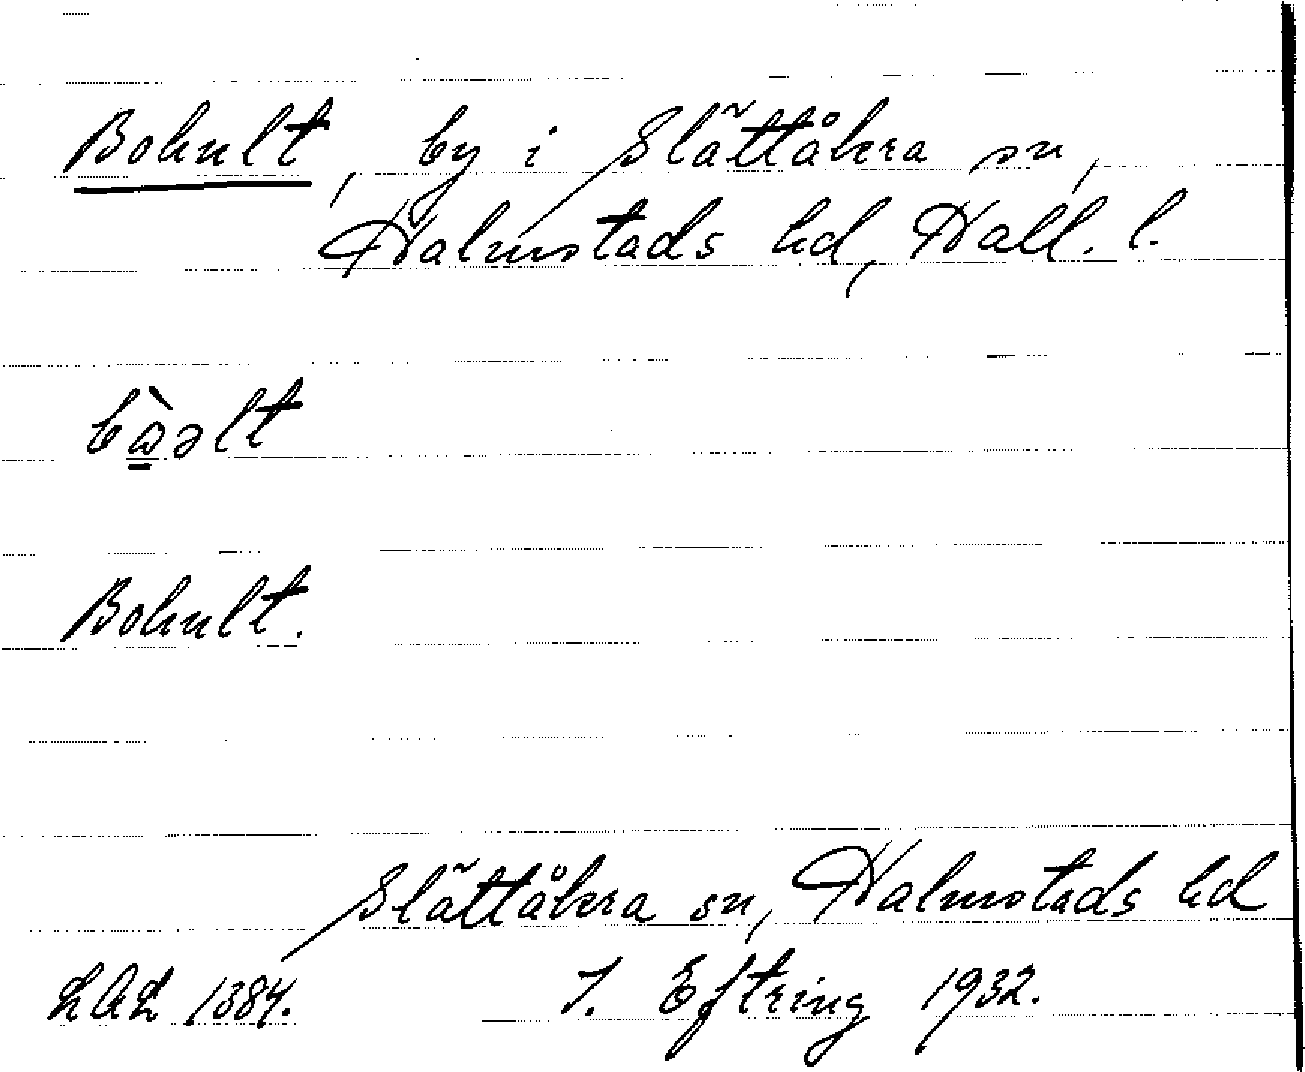 Bohult, by i Slättåkra sn,
Halmstads hd, Hall. l.
bὼəlt
Bohult.
Slättåkra sn, Halmstads hd
LAL 1384. J. Eftring 1932.